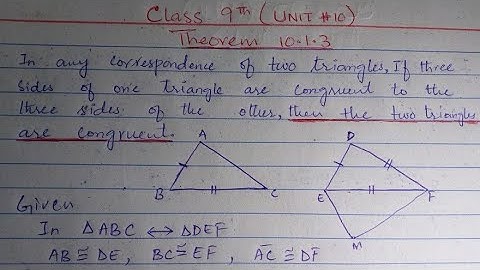 Class 9th (UNIT #10)
Theorem 10.1.3
In any correspondence of two triangles, If three
sides of one triangle are congruent to the
three sides of the other, then the two triangles
are congruent.
A
D
B
C
E
F
M
Given
In △ABC ↔ △DEF
AB ≅ DE, BC ≅ EF, A̅C̅ ≅ D̅F̅